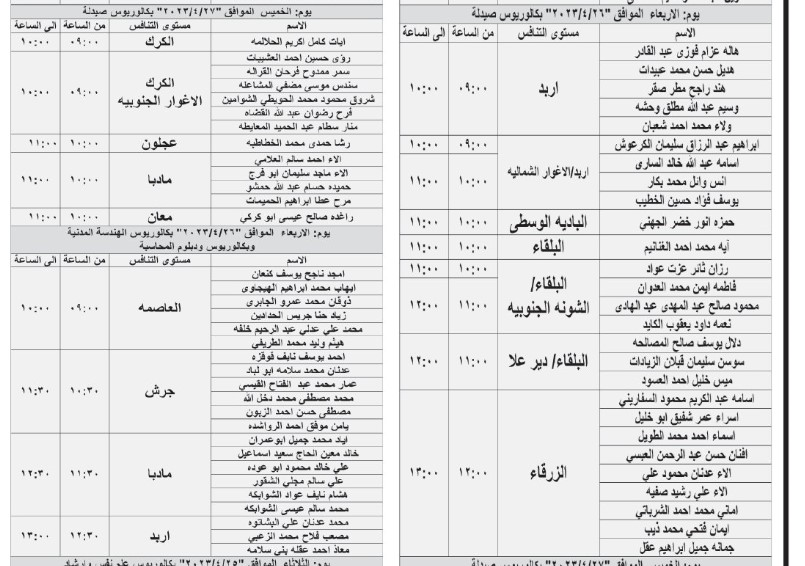 يوم: الاربعاء الموافق "٢٠٢٣/٤/٢٦" بكالوريوس صيدلة
الاسم مستوى التنافس من الساعة الى الساعة
هاله عزام فوزى عبد القادر
هديل حسن محمد عبيدات
هند راجح مطر صقر
وسيم عبد الله مطلق وحشه
ولاء محمد احمد شعبان
اربد ٠٩:٠٠ ١٠:٠٠
ابراهيم عبد الرزاق سليمان الكرعوش ٠٩:٠٠ ١٠:٠٠
اسامه عبد الله خالد السارى
انس وائل محمد بكار
يوسف فؤاد حسين الخطيب
اربد/الاغوار الشماليه ١٠:٠٠ ١١:٠٠
حمزه انور خضر الجهني الباديه الوسطى ١٠:٠٠ ١١:٠٠
آيه محمد احمد الغنانيم البلقاء ١٠:٠٠ ١١:٠٠
رزان ثائر عزت عواد ١٠:٠٠ ١١:٠٠
فاطمه ايمن محمد العدوان
محمود صالح عبد المهدى عبد الهادى
نعمه داود يعقوب الكايد
البلقاء/ الشونه الجنوبيه ١١:٠٠ ١٢:٠٠
دلال يوسف صالح المصالحه
سوسن سليمان قبلان الزيادات
ميس خليل احمد العسود
البلقاء/ دير علا ١١:٠٠ ١٢:٠٠
اسامه عبد الكريم محمود السفاريني
اسراء عمر شفيق ابو خليل
اسماء احمد محمد الطويل
افنان حسن عبد الرحمن العبسي
الاء عدنان محمود علي
الاء علي رشيد صفيه
اماني محمد احمد الشرباتي
ايمان فتحي محمد ذيب
جمانه جميل ابراهيم عقل
الزرقاء ١٢:٠٠ ١٣:٠٠
يوم: الخميس الموافق "٢٠٢٣/٤/٢٧" بكالوريوس صيدلة
يوم: الخميس الموافق "٢٠٢٣/٤/٢٧" بكالوريوس صيدلة
الاسم مستوى التنافس من الساعة الى الساعة
ايات كامل اكريم الحلالمه الكرك ٠٩:٠٠ ١٠:٠٠
رؤى حسين احمد العشيبات
سمر ممدوح فرحان القراله
سندس موسى مضفي المشاعله
شروق محمود محمد الحويطي الشوامين
فرح رضوان عبد الله القضاه
منار سطام عبد الحميد المعايطه
الكرك الاغوار الجنوبيه ٠٩:٠٠ ١٠:٠٠
رشا حمدى محمد الخطاطبه عجلون ١٠:٠٠ ١١:٠٠
الاء احمد سالم العلامي
الاء ماجد سليمان ابو فرج
حميده حسام عبد الله حمشو
مرح عطا ابراهيم الحميمات
مادبا ١٠:٠٠ ١١:٠٠
راغده صالح عيسى ابو كركي معان ١٠:٠٠ ١١:٠٠
يوم: الاربعاء الموافق "٢٠٢٣/٤/٢٦" بكالوريوس الهندسة المدنية
وبكالوريوس ودبلوم المحاسبة
الاسم مستوى التنافس من الساعة الى الساعة
امجد ناجح يوسف كنعان
ايهاب محمد ابراهيم الهيجاوى
ذوقان محمد عمرو الجابرى
زياد حنا جريس الحدادين
محمد علي عدلي عبد الرحيم خلفه
هيثم وليد محمد الطريفي
العاصمه ٠٩:٠٠ ١٠:٠٠
احمد يوسف نايف فوقزه
عدنان محمد سلامه ابو لباد
عمار محمد عبد الفتاح القيسي
محمد مصطفى محمد دخل الله
مصطفى حسن احمد الزبون
يامن موفق احمد الرواشده
جرش ١٠:٣٠ ١١:٣٠
اياد محمد جميل ابوعمران
خالد معين الحاج سعيد اسماعيل
علي خالد محمود ابو عوده
علي سالم مجلي الشقور
هشام نايف عواد الشوابكه
محمد سالم عيسى الشوابكه
مادبا ١١:٣٠ ١٢:٣٠
محمد عدنان علي البشاتوه
مصعب فلاح محمد الزعبي
معاذ احمد عقله بني سلامه
اربد ١٢:٣٠ ١٣:٠٠
يوم: الثلاثاء الموافق "٢٠٢٣/٤/٢٥" بكالوريوس علم نفس وارشاد